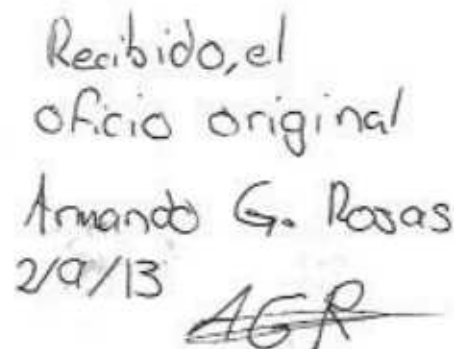 Recibido, el
oficio original
Armando G. Rosas
2/9/13
AGR